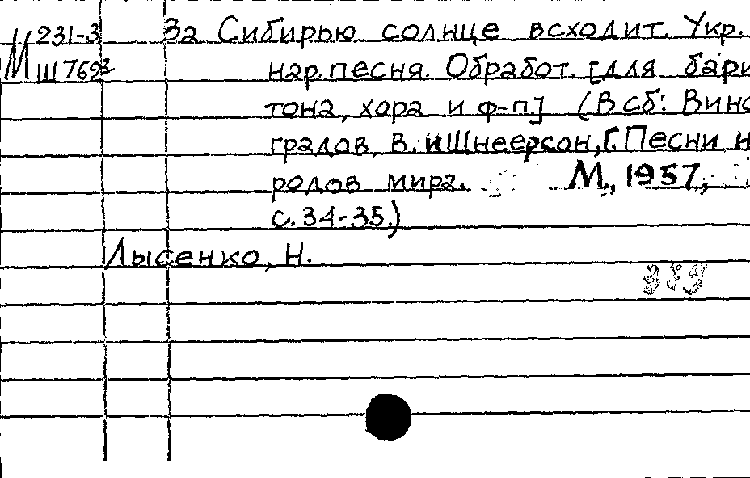 М 231-3 За Сибирью солнце всходит. Укр.
Ш 769² нар. песня. Обработ. [для бари
тона, хора и ф-п] (В сб: Вино
градов, В. и Шнеерсон, Г. Песни н
родов мира. М., 1957,
с. 34-35.)
Лысенко, Н.